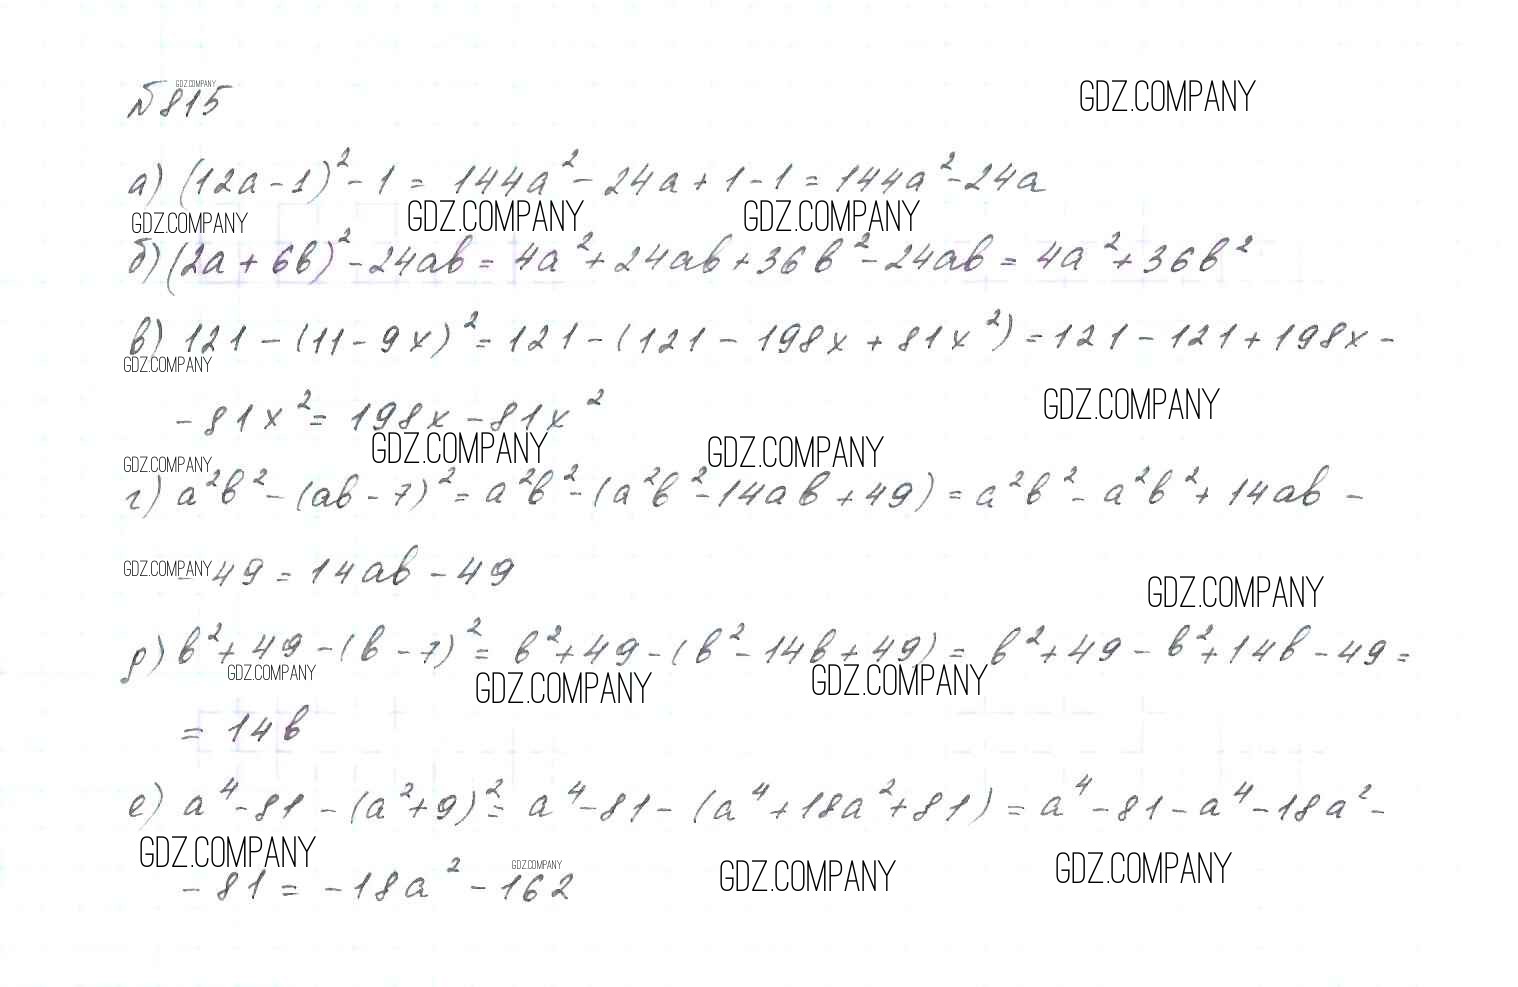 №815
GDZ.COMPANY
GDZ.COMPANY
а) (12a-1)²-1 = 144a²-24a+1-1 = 144a²-24a
GDZ.COMPANY GDZ.COMPANY GDZ.COMPANY
б) (2a+6b)²-24ab = 4a²+24ab+36b²-24ab = 4a²+36b²
в) 121-(11-9x)² = 121-(121-198x+81x²) = 121-121+198x-
GDZ.COMPANY
-81x² = 198x-81x²
GDZ.COMPANY
GDZ.COMPANY GDZ.COMPANY
GDZ.COMPANY
г) a²b²-(ab-7)² = a²b²-(a²b²-14ab+49) = a²b²-a²b²+14ab-
GDZ.COMPANY
-49 = 14ab-49
GDZ.COMPANY
д) b²+49-(b-7)² = b²+49-(b²-14b+49) = b²+49-b²+14b-49 =
GDZ.COMPANY GDZ.COMPANY GDZ.COMPANY
= 14b
е) a⁴-81-(a²+9)² = a⁴-81-(a⁴+18a²+81) = a⁴-81-a⁴-18a²-
GDZ.COMPANY GDZ.COMPANY GDZ.COMPANY GDZ.COMPANY
-81 = -18a²-162